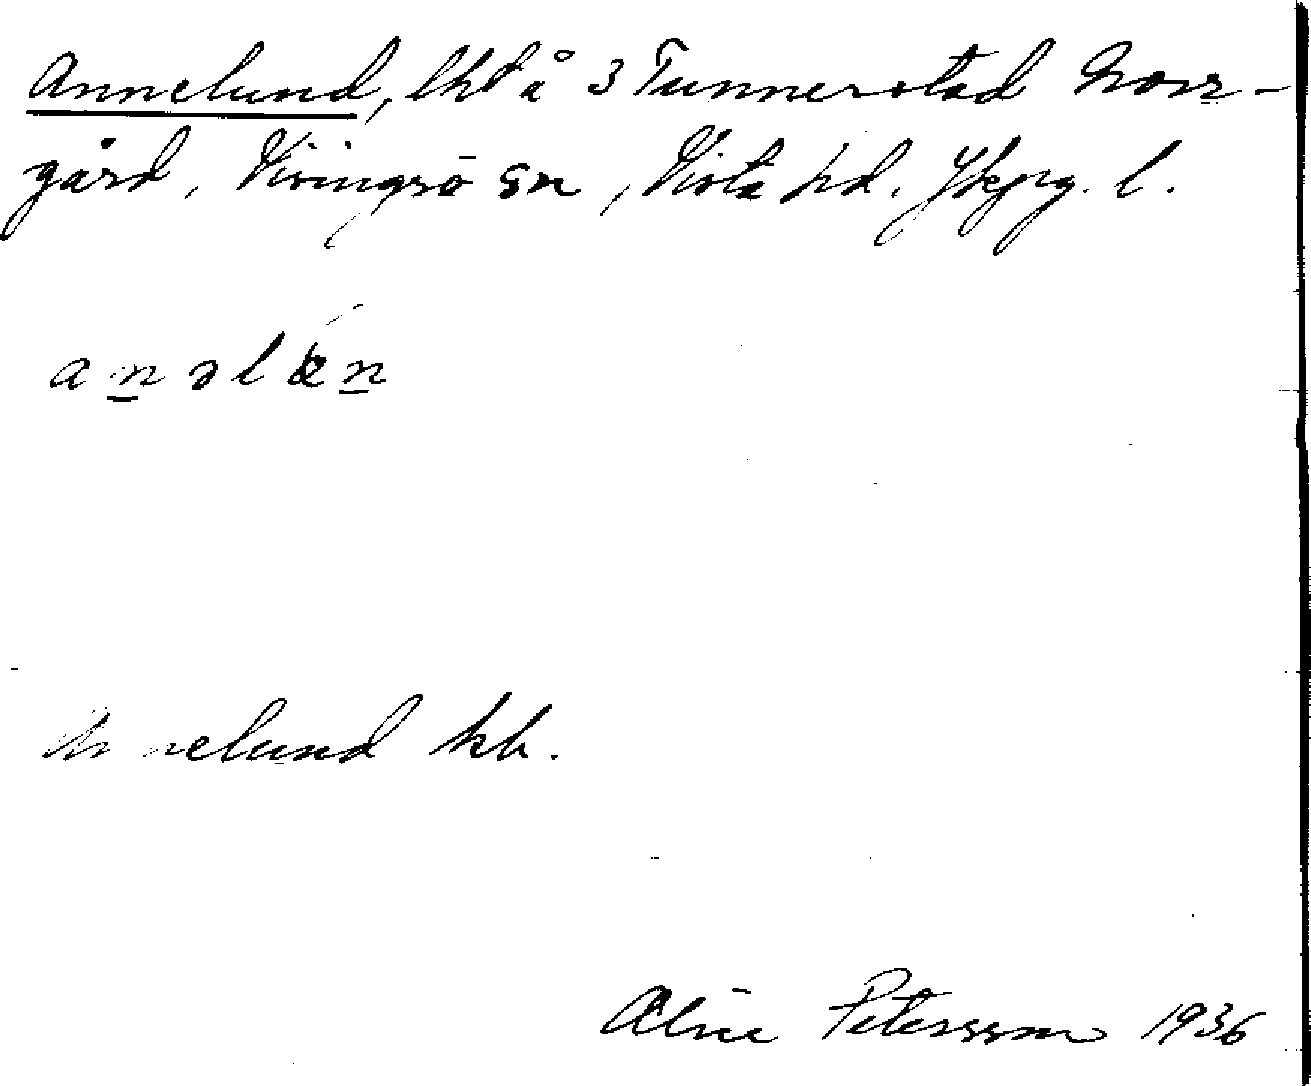 Annelund, lht å 3 Tunnerstad Norr-
gård, Visingsö sn, Vista hd. Jkpg. l.
Annelund kb.
Alice Petersson 1936